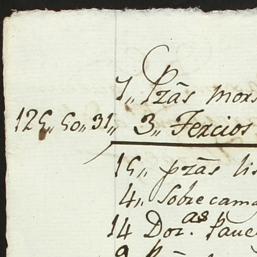 7,, Pzãs mors
125,,50,,31,, 3,, Tercios
15,, pzãs lis
4,, Sobrecama
14 Doz.as Pave